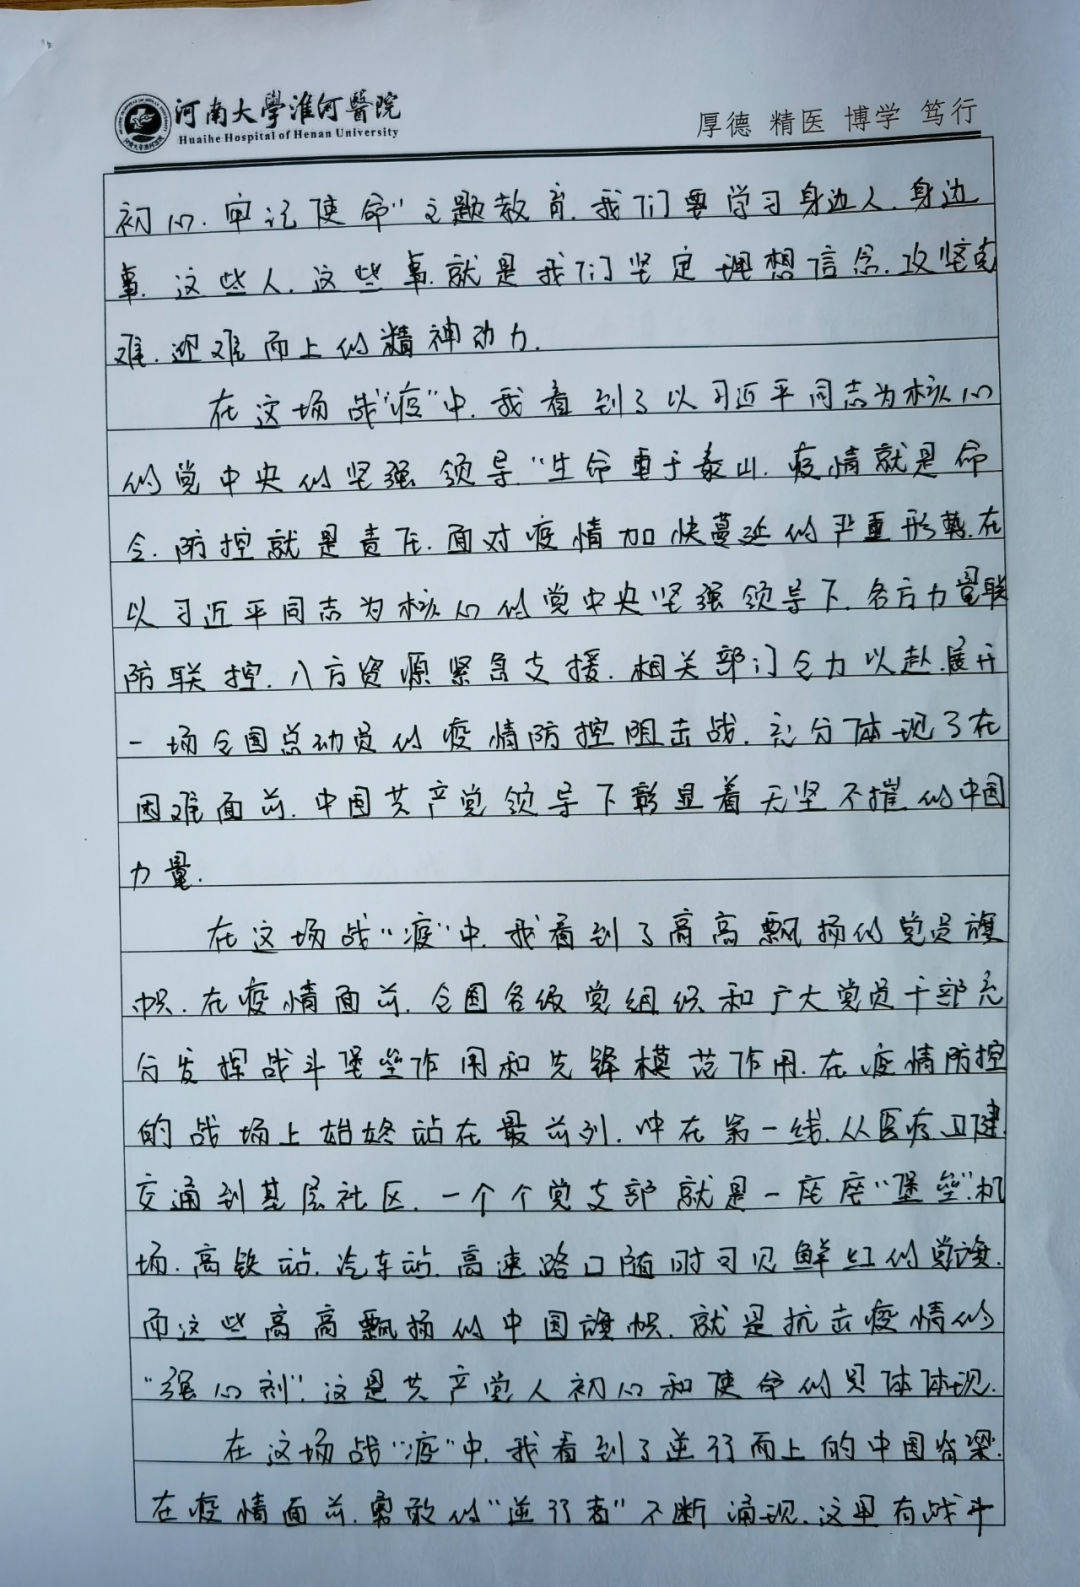 河南大學淮河醫院
Huaihe Hospital of Henan University
厚德 精医 博学 笃行
初心、牢记使命”主题教育,我们要学习身边人、身边
事,这些人、这些事就是我们坚定理想信念、攻坚克
难、迎难而上的精神动力.
在这场战“疫”中,我看到了以习近平同志为核心
的党中央的坚强领导.“生命重于泰山.疫情就是命
令.防控就是责任.面对疫情加快蔓延的严重形势.在
以习近平同志为核心的党中央坚强领导下.各方力量联
防联控.八方资源紧急支援.相关部门全力以赴.展开
一场全国总动员的疫情防控阻击战.充分体现了在
困难面前.中国共产党领导下彰显着无坚不摧的中国
力量.
在这场战“疫”中.我看到了高高飘扬的党员旗
帜.在疫情面前.全国各级党组织和广大党员干部充
分发挥战斗堡垒作用和先锋模范作用.在疫情防控
的战场上始终站在最前列.冲在第一线.从医疗卫健.
交通到基层社区.一个个党支部就是一座座“堡垒”.机
场.高铁站.汽车站.高速路口随时可见鲜红的党旗.
而这些高高飘扬的中国旗帜.就是抗击疫情的
“强心剂”.这是共产党人初心和使命的具体体现.
在这场战“疫”中.我看到了逆行而上的中国脊梁.
在疫情面前.勇敢的“逆行者”不断涌现.这里有战斗